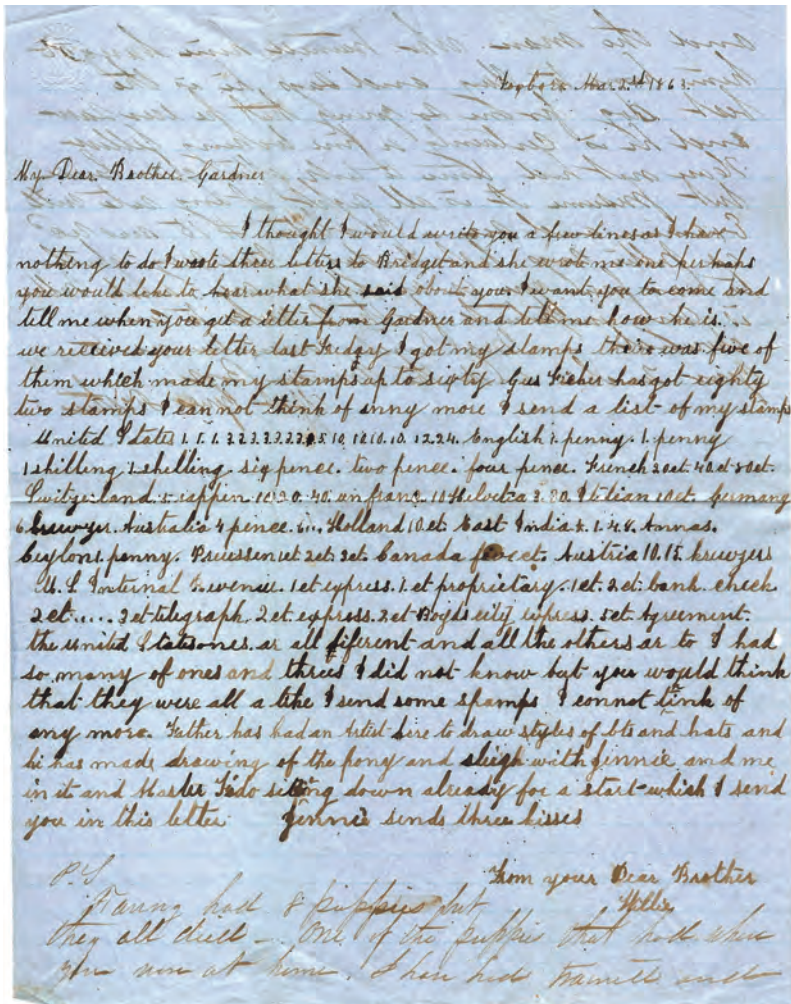 Foxboro Mar. 2nd 1863.
My Dear Brother Gardner
I thought I would write you a few lines as I have
nothing to do I wrote three letters to Bridget and she wrote me one perhaps
you would like to hear what she said about your I want you to come and
tell me when you get a letter from Gardner and tell me how he is.
we received your letter last I got my stamps their was five of
them which made my stamps up to sixty Gus Fisher has got eighty
two stamps I can not think of anny more I send a list of my stamps
United States 1. 1. 1. 3 2 3. 3 10. 10. 12. 24. English 1. penny. 1. penny
1 shilling 1. shelling. six pence. two pence. four pence. French 20ct. 40ct 80ct.
Switzerland. 5. rappen 10. 20. 40. un franc. 10 Helvetia 3. 20. Itilian 10ct. Germany
6 kreuzer. Australia 4 pence. 6... Holland 10. ct. East India 1. 4. 8. Annas.
Ceylon 1. penny. Preussen ct 2ct. 3ct. Canada five ct. Austria 10. 15. kreuzers
U. S Internal Revenue. 1 ct express. 1. ct proprietary. 1ct. 2 ct. bank. check
2 ct..... 3 ct telegraph. 2 ct. express. 2 ct Boyds city express. 5ct Agreement.
the United States ones. ar all diferent and all the others ar to I had
so many of ones and threes I did not know but you would think
that they were all a like I send some spamps I connot tink of
any more. Father has had an Artist here to draw styles of and hats and
he has made drawing of the pony and sleigh with Jennie and me
in it and Master Fido setting down already for a start which I send
you in this letter Jennie sends three kisses
From your Dear Brother
Willie
P. S
had 8 puppies but
they all died – One of the puppies that had when
you were at home. I have had and